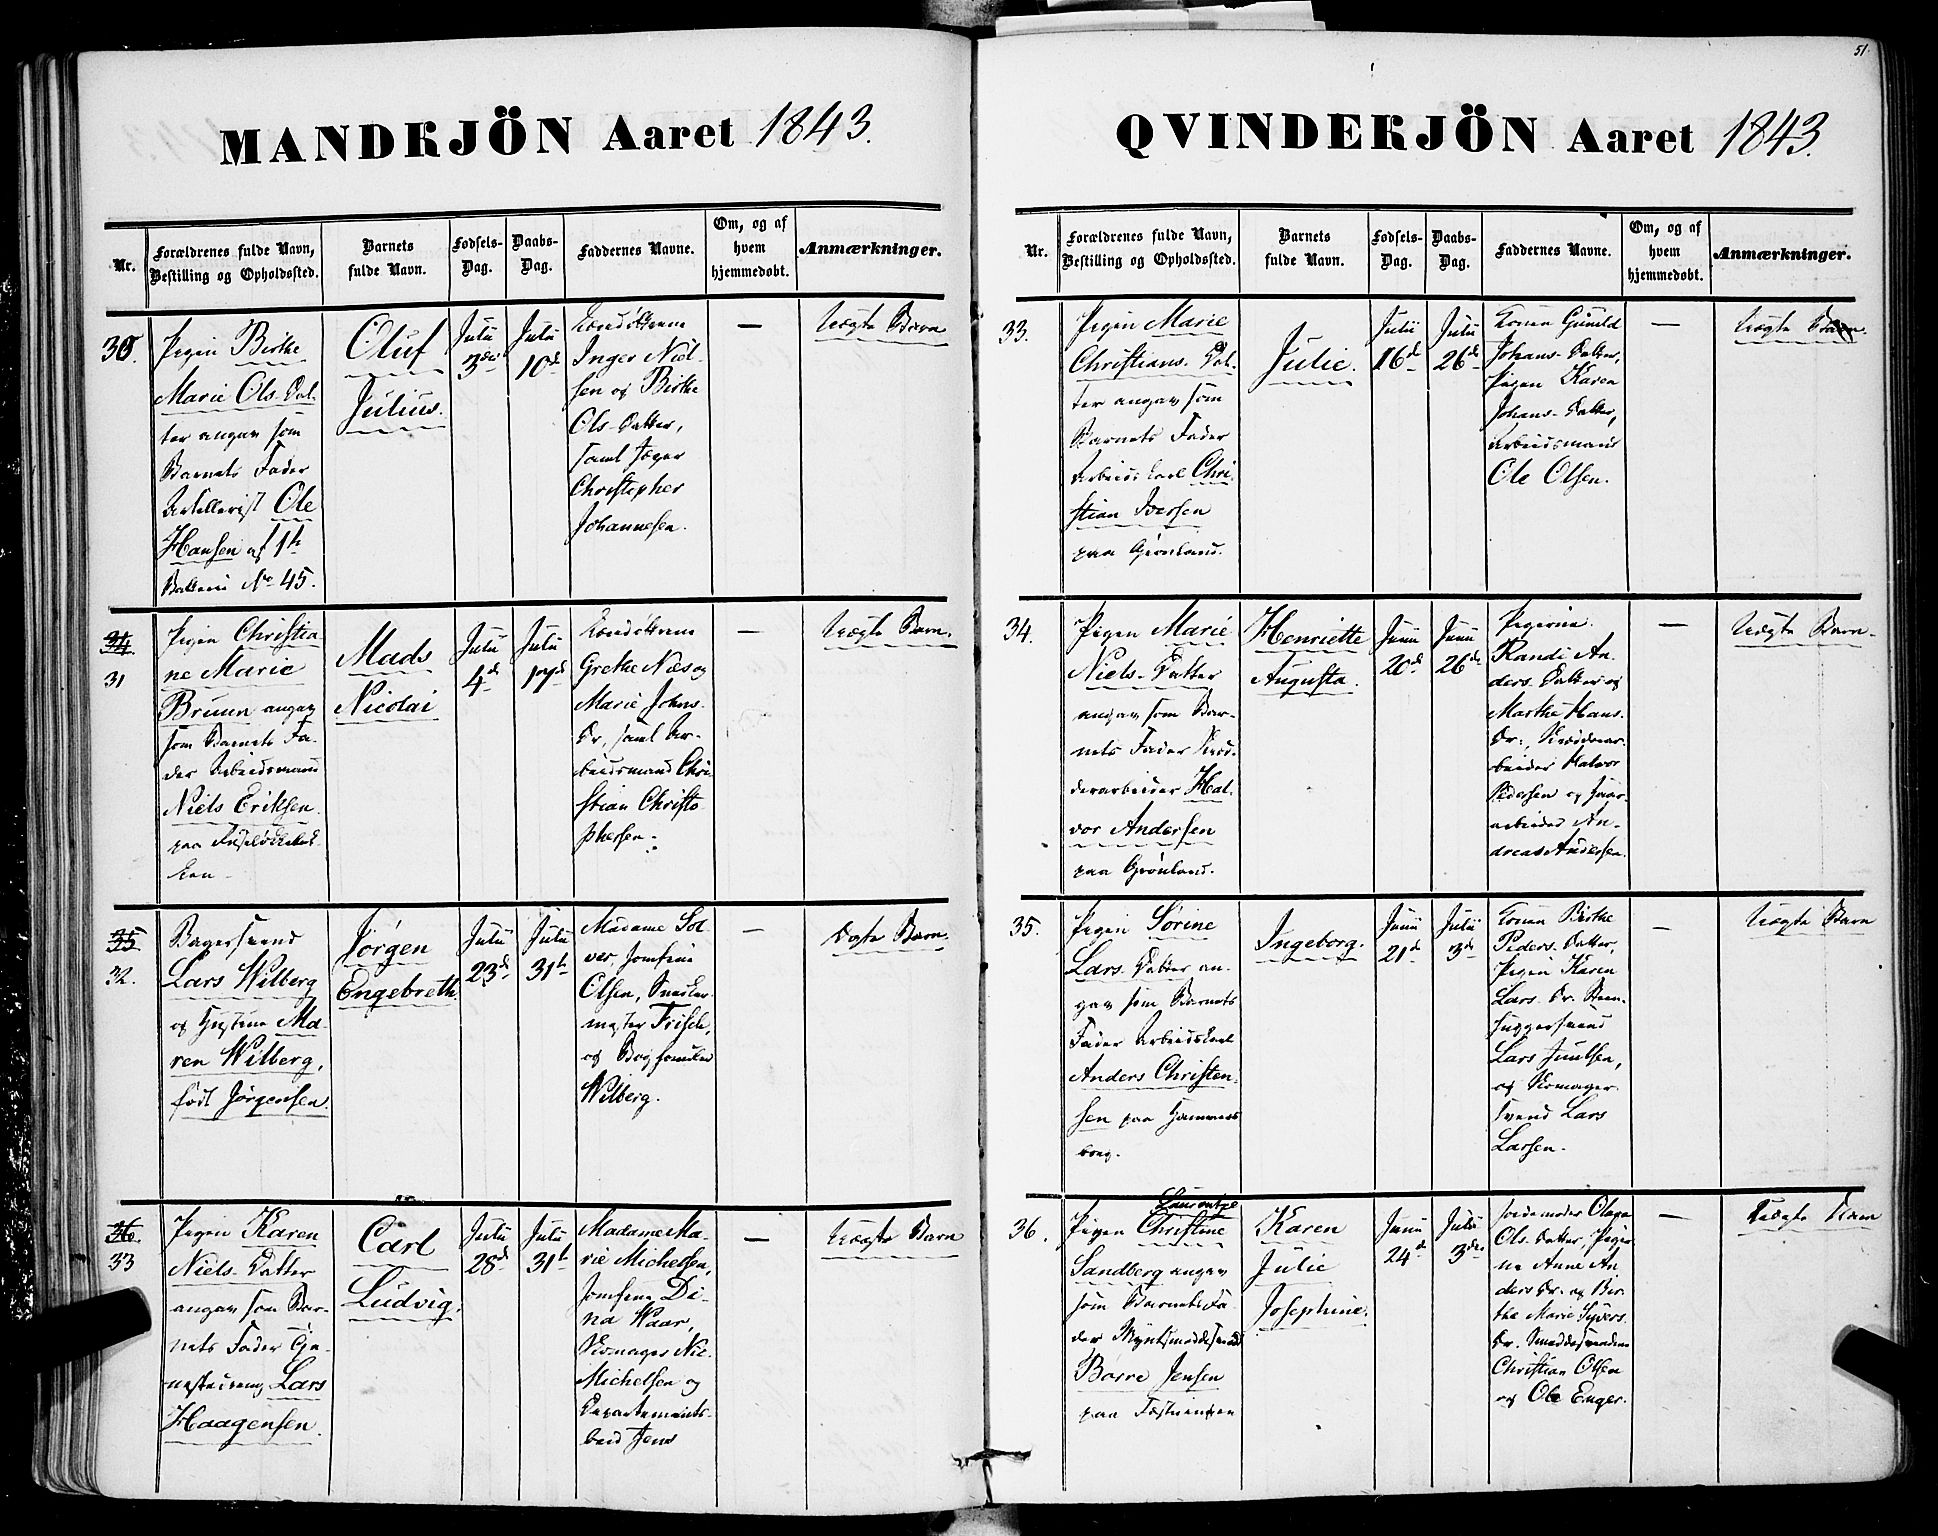 51.
MANDKJÖN Aaret 1843.
Nr.
Forældrenes fulde Navn,
Bestilling og Opholdssted.
Barnets
fulde Navn.
Fødsels-
Dag.
Daabs-
Dag.
Faddernes Navne.
Om, og af
hvem
hjemmedøbt.
Anmærkninger.
30.
Pigen Birthe
Marie Ols-Dat-
ter angav som
Barnets Fader
Artellerist Ole
Hansen af 1te
Batterie No 45.
Oluf
Julius.
Julii
3die
Julii
10de
Inger Niel-
sen og Birthe
Ols-Datter,
samt Jæger
Christopher
Johannesen.
—
Uægte Barn
34
31
Pigen Christia-
ne Marie
Bruun angav
som Barnets Fa-
der Arbeidsmand
Niels Eriksen
paa
Mads
Nicolai
Julii
4de
Julii
17de
Grethe Næs og
Marie Johns-
Dr, samt Ar-
beidsmand Chri-
stian Christo-
phersen.
—
Uægte Barn.
35
32.
Bagersvend
Lars Wilberg
og Hustrue Ma-
ren Wilberg,
født Jørgensen.
Jørgen
Engebreth
Julii
23de
Julii
31te
Madame Sol-
ver, Jomfrue
Olsen, Snedker-
mester Frisch,
og
Wilberg.
—
Ægte Barn.
36.
33
Pigen Karen
Niels-Datter
angav som Bar-
nets Fader
Lars
Haagensen.
Carl
Ludvig.
Julii
28de
Julii
31te
Madame Ma-
rie Michelsen,
Jomfrue Di-
na Waar,
Skomager Nic.
Michelsen og
Departements-
bud Jens
—
Uægte Barn
QVINDEKJÖN Aaret 1843.
Nr.
Forældrenes fulde Navn,
Bestilling og Opholdssted.
Barnets
fulde Navn.
Fødsels-
Dag.
Daabs-
Dag.
Faddernes Navne.
Om, og af
hvem
hjemmedøbt.
Anmærkninger.
33.
Pigen Marie
Christians-Dat-
ter angav som
Barnets Fader
Arbeids Karl Chri-
stian Iversen
paa Grønland.
Julie.
Julii
16de
Julii
26de
Konen Gunild
Johans-Datter,
Pigen Karen
Johans-Datter,
Arbeidsmand
Ole Olsen.
—
Uægte Barn.
34.
Pigen Marie
Niels-Datter
angav som Bar-
nets Fader Krud-
derarbeider Hal-
vor Andersen
paa Grønland.
Henriette
Augusta.
Junii
20de
Junii
26de
Pigerne
Randi An-
ders-Datter og
Marthe Hans-
Dr.,
beider Halvor
Pedersen og
arbeider An-
dreas Andersen.
—
Uægte Barn.
35.
Pigen Sørine
Lars-Datter an-
gav som Barnets
Fader Arbeidskarl
Anders Christen-
sen paa Hammers-
borg.
Ingeborg.
Junii
21de
Julii
3de
Konen Birthe
Peders-Datter,
Pigen Karen
Lars-Dr. Steen-
huggersvend
Lars Juulsen,
og Skomager-
svend Lars
Larsen.
—
Uægte Barn
36.
Laurentze
Pigen Christine
Sandberg angav
som Barnets Fa-
der Myntsmeddesvend
Børre Jensen
paa Fæstningen
Karen
Julie
Josephine.
Junii
24de
Julii
3die
Jordemoder Olava
Ols-Datter, Piger-
ne Anne An-
ders Dr. og Bir-
the Marie Syvers-
Dr. Smeddesvendene
Christian Olsen
og Ole Enger.
—
Uægte Barn